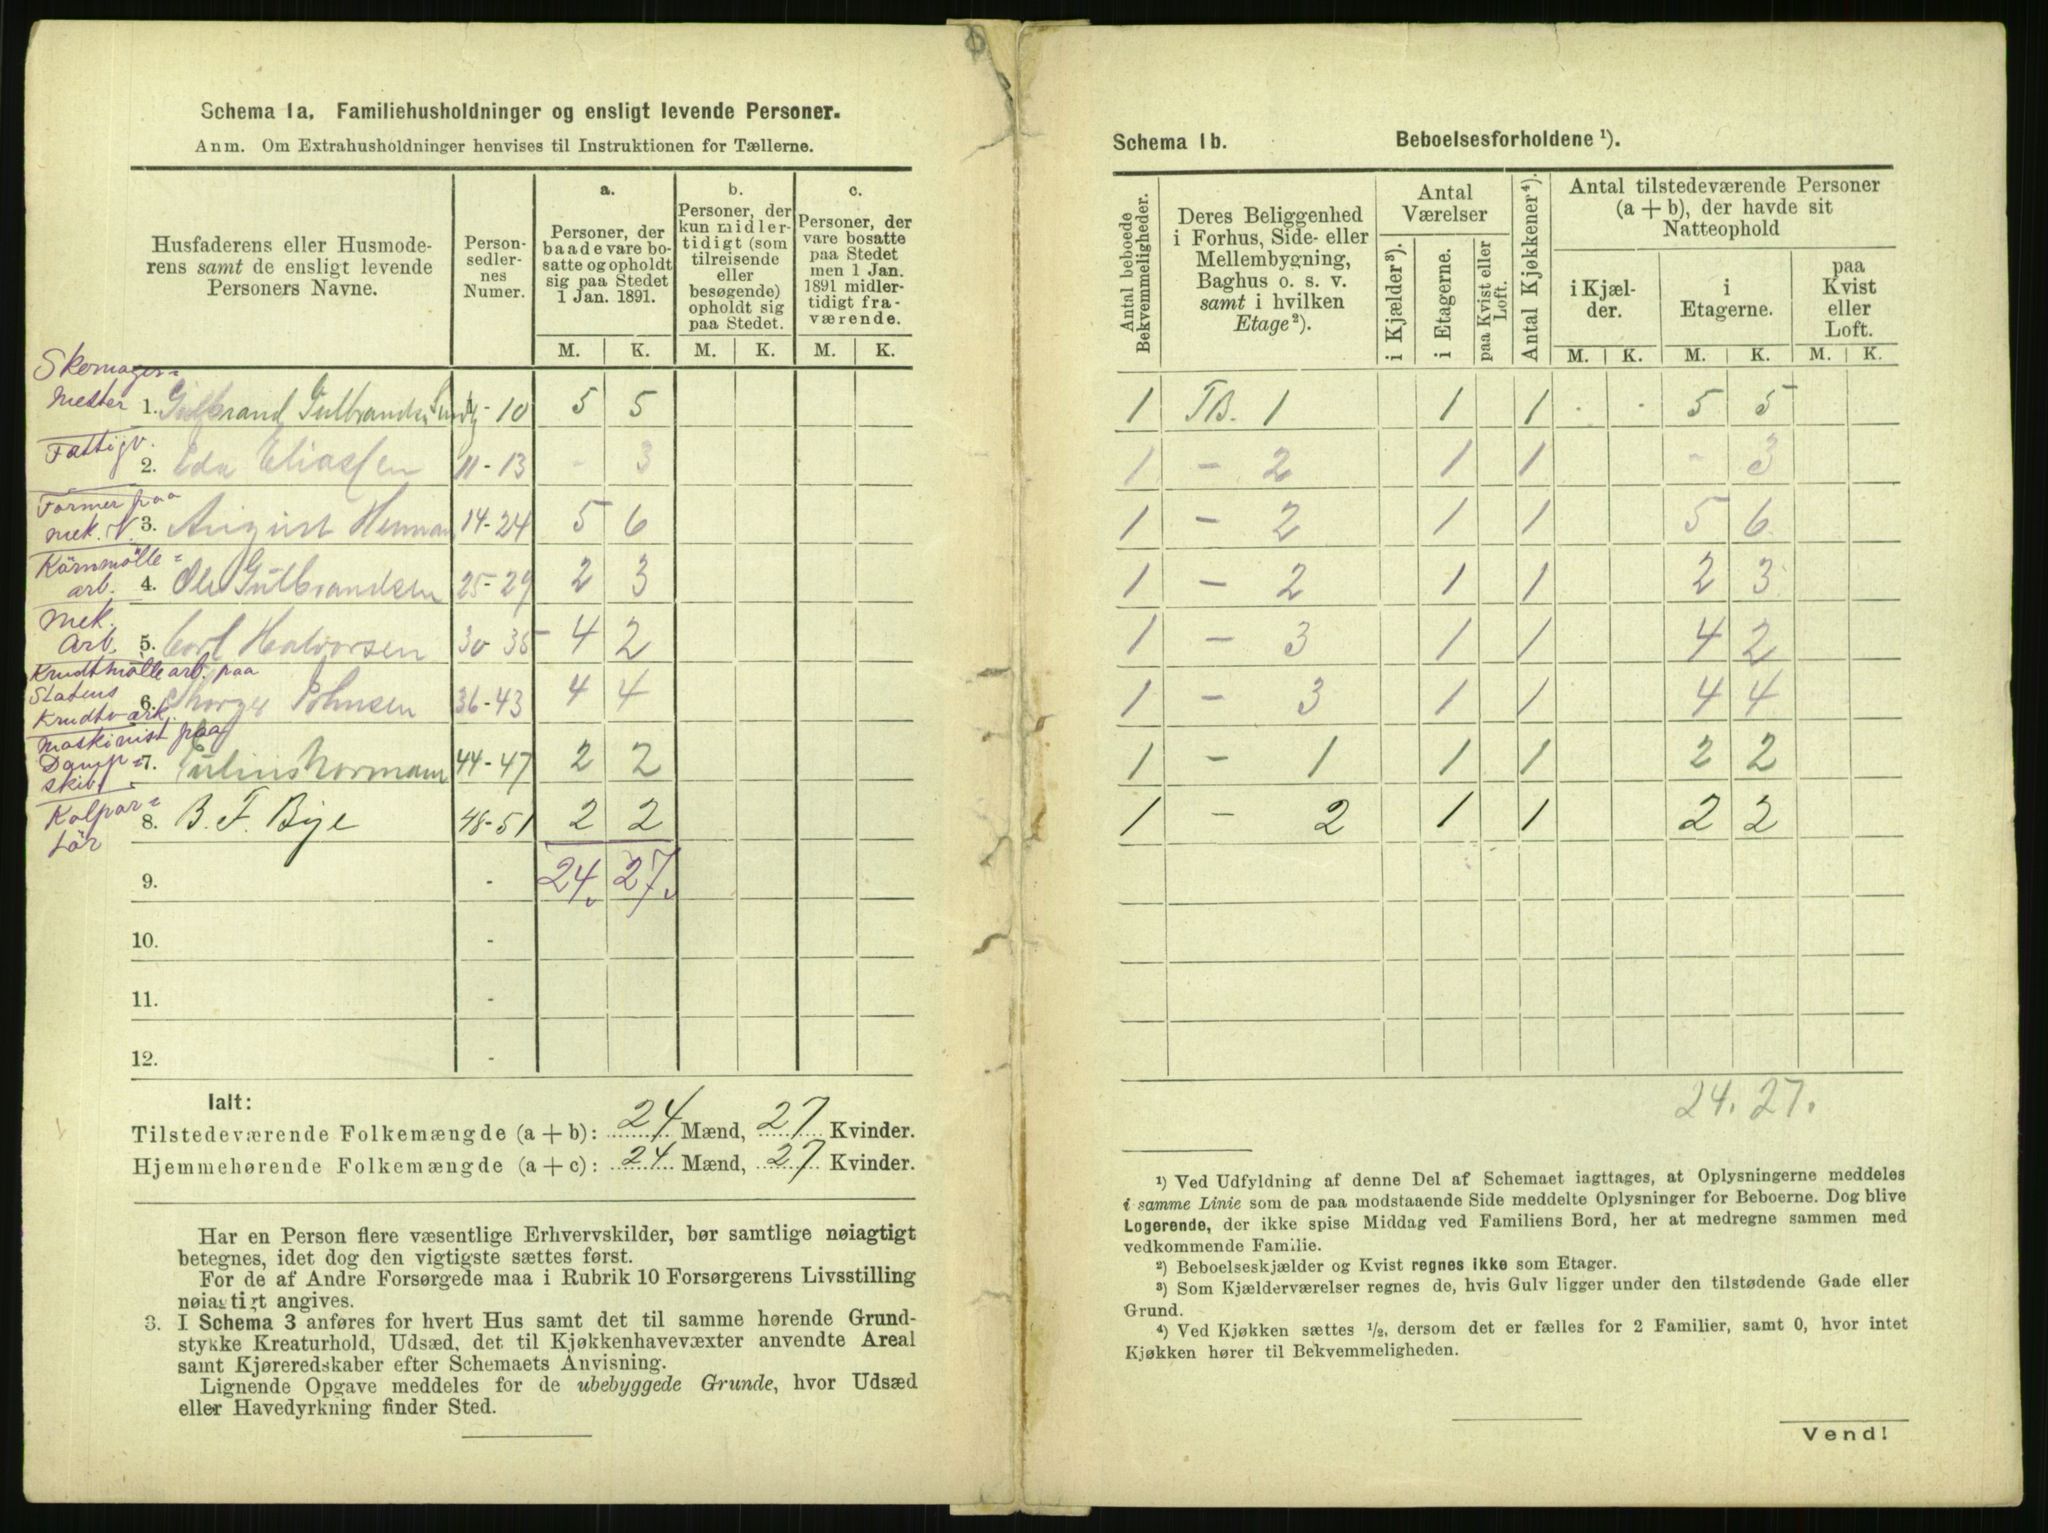 Schema 1a. Familiehusholdninger og ensligt levende Personer.
Anm. Om Extrahusholdninger henvises til Instruktionen for Tællerne.
Husfaderens eller Husmode-
rens samt de ensligt levende
Personers Navne.
Person-
sedler-
nes
Numer.
a.
Personer, der
baade vare bo-
satte og opholdt
sig paa Stedet
1 Jan. 1891.
b.
Personer, der
kun midler-
tidigt (som
tilreisende
eller
besøgende)
opholdt sig
paa Stedet.
c.
Personer, der
vare bosatte
paa Stedet
men 1 Jan.
1891 midler-
tidigt fra-
værende.
M. K. M. K. M. K.
Skomager=
mester 1. Gulbrand Gulbrandsen 1-10 5 5
Fattigv. 2. Eda Eliassen 11-13 - 3
Former paa
mek. V. 3. August Herman 14-24 5 6
Kårnmölle=
arb. 4. Ole Gulbrandsen 25-29 2 3
Mek.
Arb. 5. Carl Halvorsen 30-35 4 2
Krudtmölle arb. paa
Statens
Krudtværk. 6. Johnsen 36-43 4 4
Maskinist paa
Damp=
skib. 7. Julius Normann 44-47 2 2
Kolpor=
tör 8. B. F. Bye 48-51 2 2
9. - 24. 27.
10. -
11. -
12. -
Ialt:
Tilstedeværende Folkemængde (a + b): 24 Mænd, 27 Kvinder.
Hjemmehørende Folkemængde (a + c): 24 Mænd, 27 Kvinder.
Har en Person flere væsentlige Erhvervskilder, bør samtlige nøiagtigt
betegnes, idet dog den vigtigste sættes først.
For de af Andre Forsørgede maa i Rubrik 10 Forsørgerens Livsstilling
nøiagtigt angives.
3. I Schema 3 anføres for hvert Hus samt det til samme hørende Grund-
stykke Kreaturhold, Udsæd, det til Kjøkkenhavevæxter anvendte Areal
samt Kjøreredskaber efter Schemaets Anvisning.
Lignende Opgave meddeles for de ubebyggede Grunde, hvor Udsæd
eller Havedyrkning finder Sted.
Schema 1b. Beboelsesforholdene ¹).
Antal beboede
Bekvemmeligheder.
Deres Beliggenhed
i Forhus, Side- eller
Mellembygning,
Baghus o. s. v.
samt i hvilken
Etage ²).
Antal
Værelser
i Kjælder ³).
i Etagerne.
paa Kvist eller
Loft.
Antal Kjøkkener ⁴).
Antal tilstedeværende Personer
(a + b), der havde sit
Natteophold
i Kjæl-
der.
i
Etagerne.
paa
Kvist
eller
Loft.
M. K. M. K. M. K.
1 FB. 1 1 1 . . 5 5
1 - 2 1 1 - 3
1 - 2 1 1 5 6
1 - 2 1 1 2 3
1 - 3 1 1 4 2
1 - 3 1 1 4 4
1 - 1 1 1 2 2
1 - 2 1 1 2 2
24. 27.
¹) Ved Udfyldning af denne Del af Schemaet iagttages, at Oplysningerne meddeles
i samme Linie som de paa modstaaende Side meddelte Oplysninger for Beboerne. Dog blive
Logerende, der ikke spise Middag ved Familiens Bord, her at medregne sammen med
vedkommende Familie.
²) Beboelseskjælder og Kvist regnes ikke som Etager.
³) Som Kjælderværelser regnes de, hvis Gulv ligger under den tilstødende Gade eller
Grund.
⁴) Ved Kjøkken sættes ½, dersom det er fælles for 2 Familier, samt 0, hvor intet
Kjøkken hører til Bekvemmeligheden.
Vend!